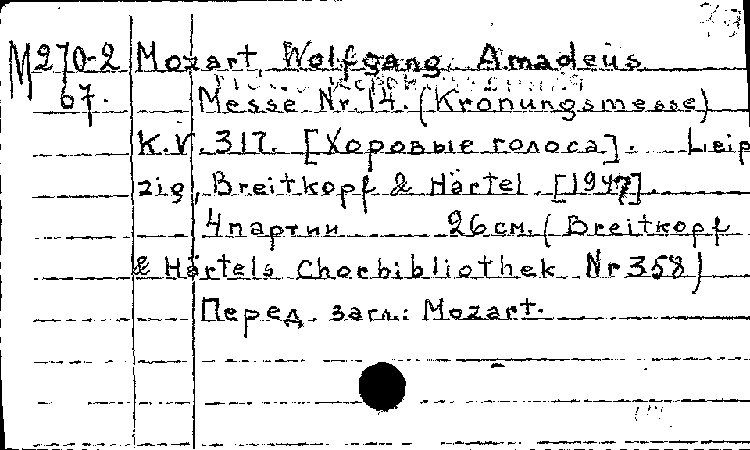 М270-2 Mozart, Wolfgang Amadeus
67. Messe Nr. 14. (Kronungsmesse)
K.V. 317. [Хоровые голоса]. Leip
zig, Breitkopf & Härtel. [1947].
4 партии 26 см. (Breitkopf
& Härtels Chorbibliothek Nr 358)
Перед. загл.: Mozart.